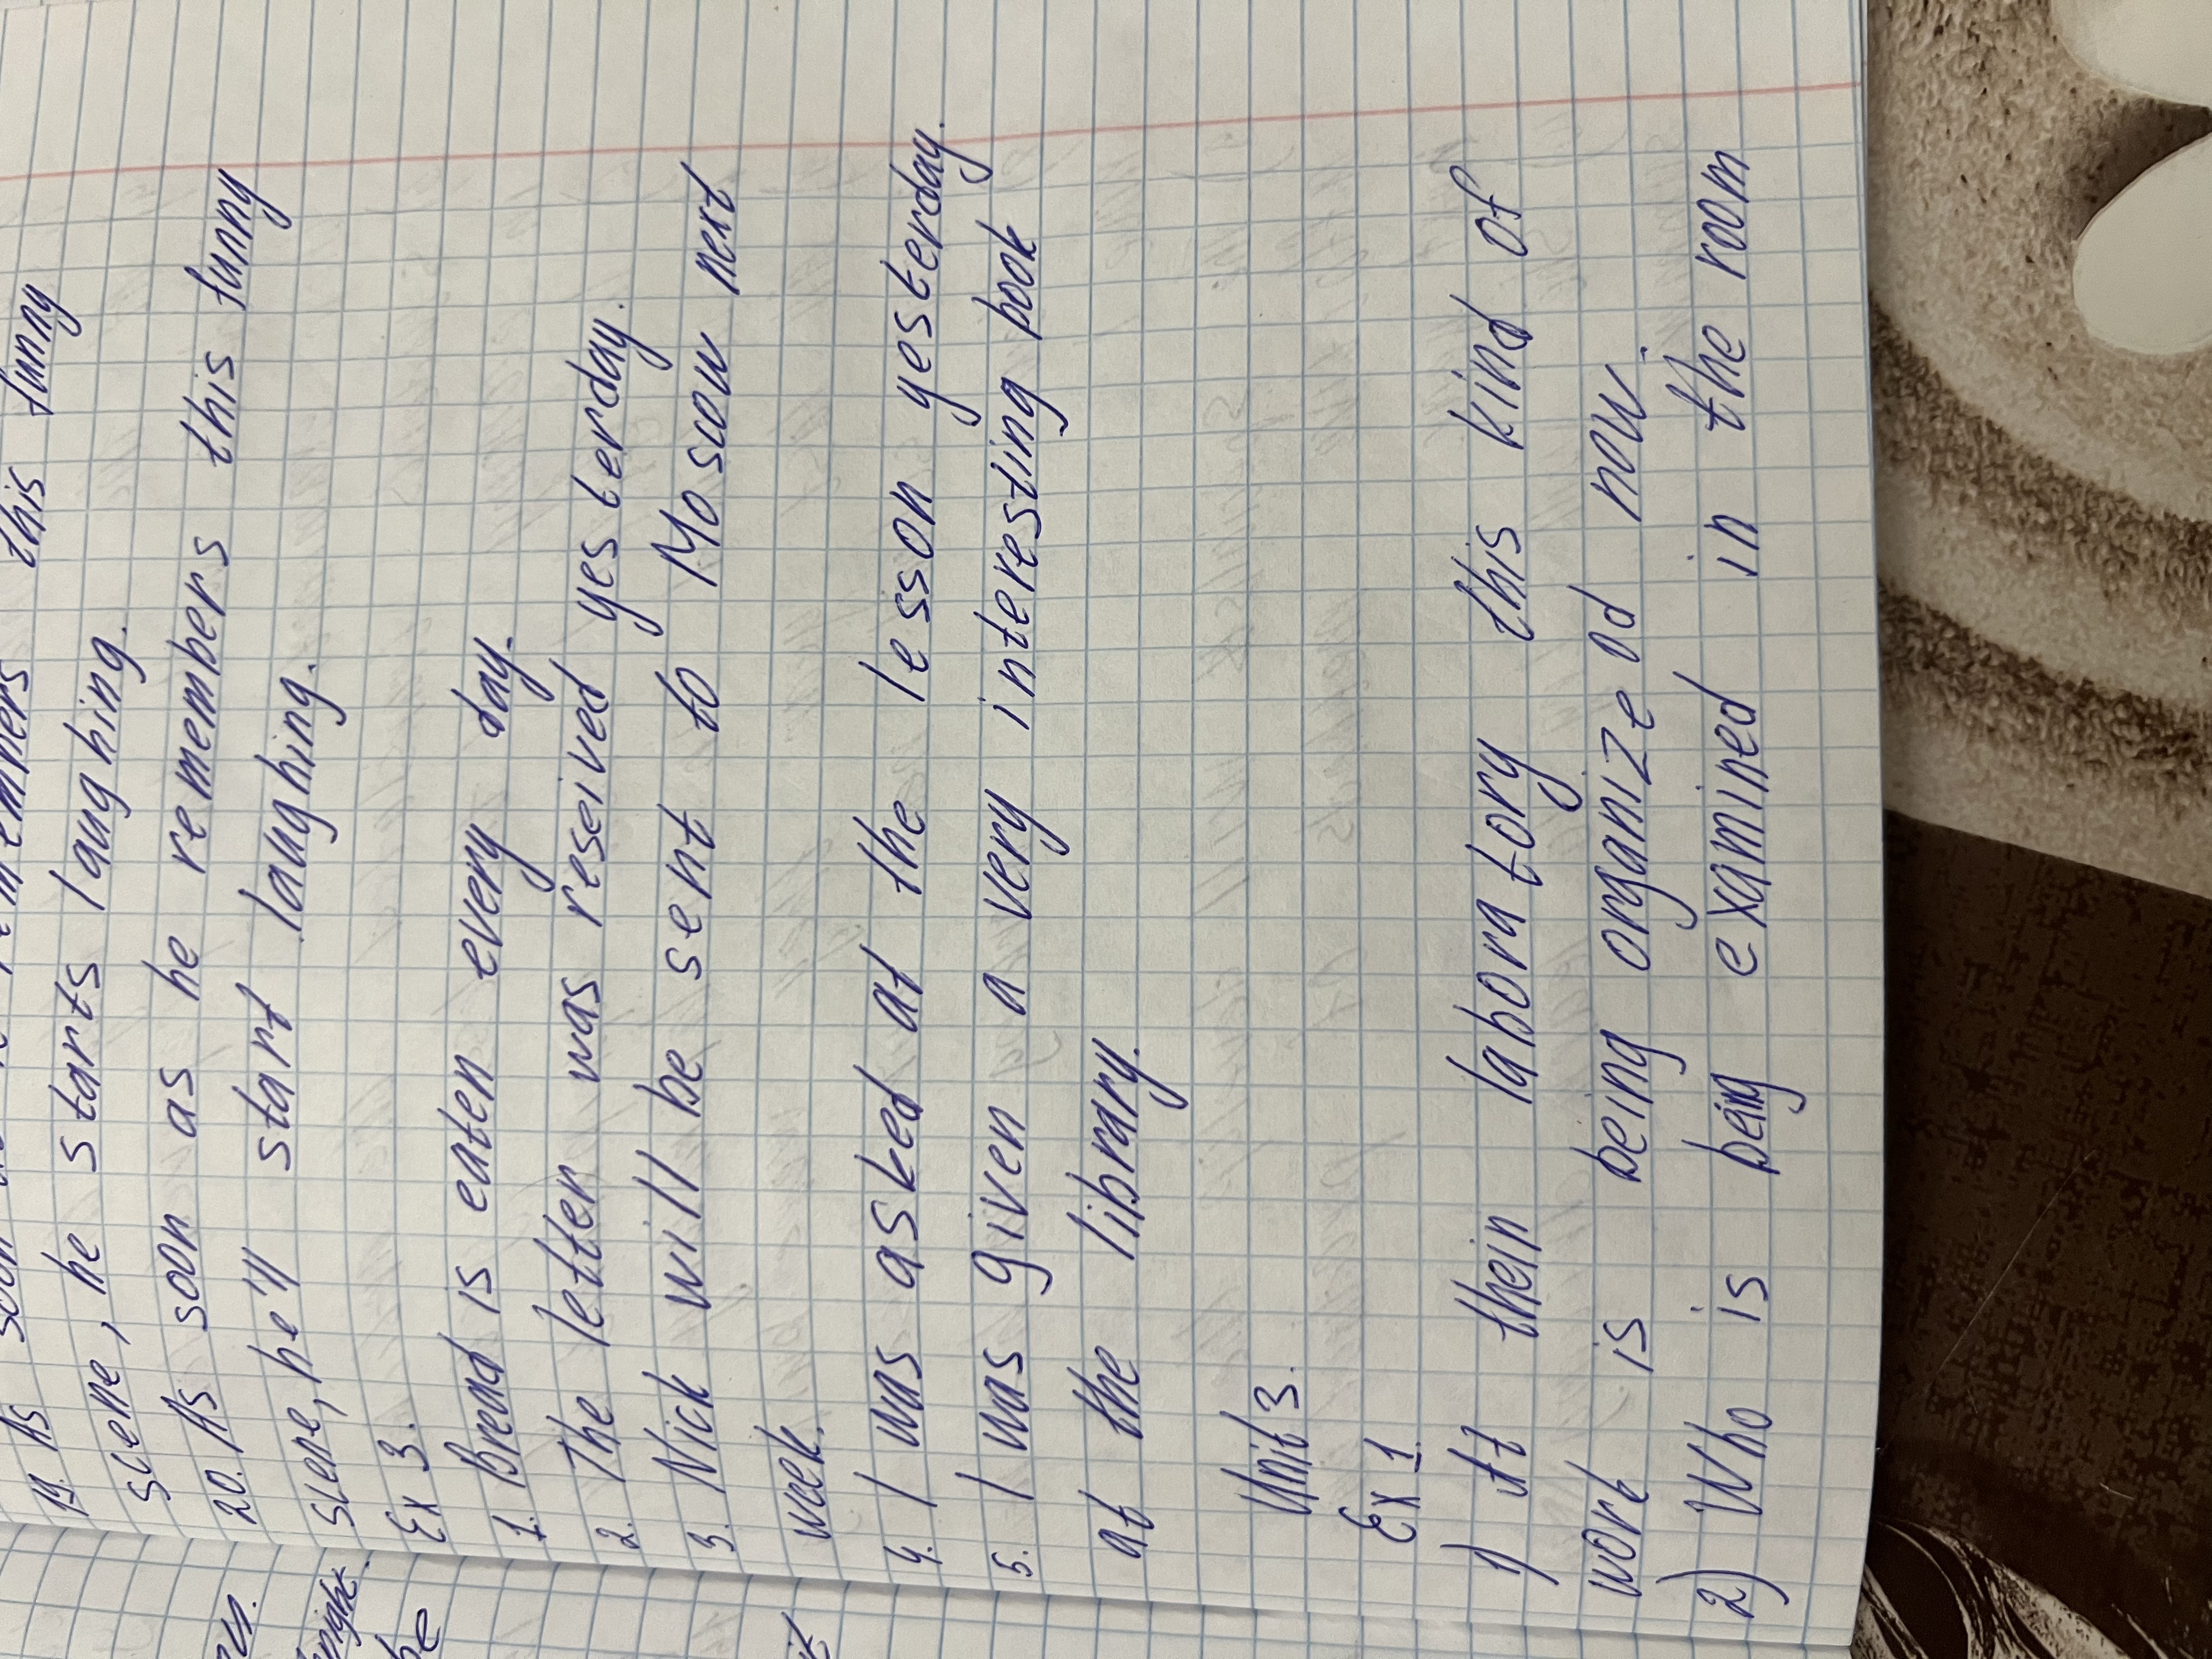 this funny
19. As soon
scene, he starts laughing.
20. As soon as he remembers this funny
scene, he'll start laughing.
Ex 3.
1. Bread is eaten every day.
2. The letter was reseived yesterday.
3. Nick will be sent to Moscow next
week.
4. I was asked at the lesson yesterday.
5. I was given a very interesting book
at the library.
Unit 3.
Ex 1.
1) At thein laboratory this kind of
work is being organized now.
2) Who is being examined in the room